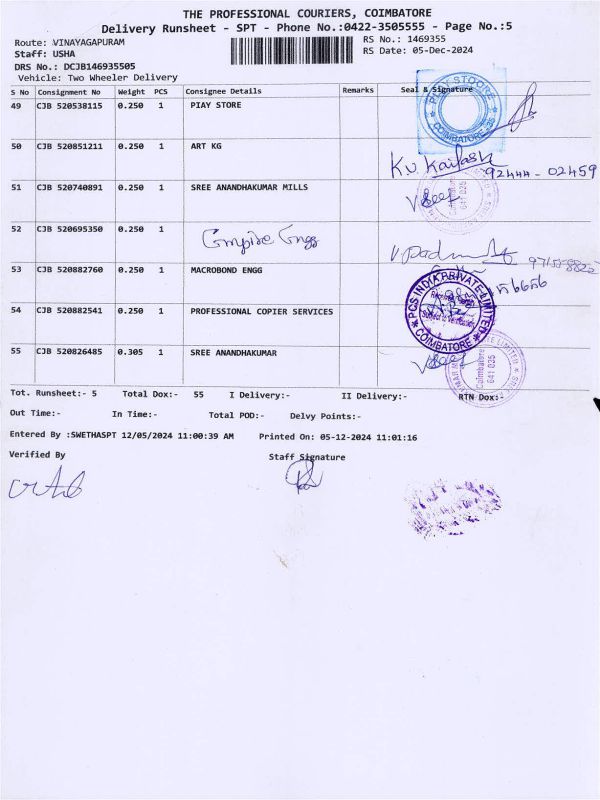 THE PROFESSIONAL COURIERS, COIMBATORE
Delivery Runsheet - SPT - Phone No.:0422-3505555 - Page No.:5
Route: VINAYAGAPURAM
RS No.: 1469355
Staff: USHA
RS Date: 05-Dec-2024
DRS No.: DCJB146935505
Vehicle: Two Wheeler Delivery
S No Consignment No Weight PCS Consignee Details Remarks Seal & Signature
49 CJB 520538115 0.250 1 PIAY STORE
COIMBATORE-35
50 CJB 520851211 0.250 1 ART KG
K.V. Kailash
92444-02459
51 CJB 520740891 0.250 1 SREE ANANDHAKUMAR MILLS
Coimbatore
641 035
52 CJB 520695350 0.250 1 Empire Engg
53 CJB 520882760 0.250 1 MACROBOND ENGG
54 CJB 520882541 0.250 1 PROFESSIONAL COPIER SERVICES
PCS INDIA PRIVATE LIMITED
Subject to Verification
COIMBATORE
55 CJB 520826485 0.305 1 SREE ANANDHAKUMAR
Coimbatore
641 035
Tot. Runsheet:- 5 Total Dox:- 55 I Delivery:- II Delivery:- RTN Dox:-
Out Time:- In Time:- Total POD:- Delvy Points:-
Entered By :SWETHASPT 12/05/2024 11:00:39 AM Printed On: 05-12-2024 11:01:16
Verified By Staff Signature